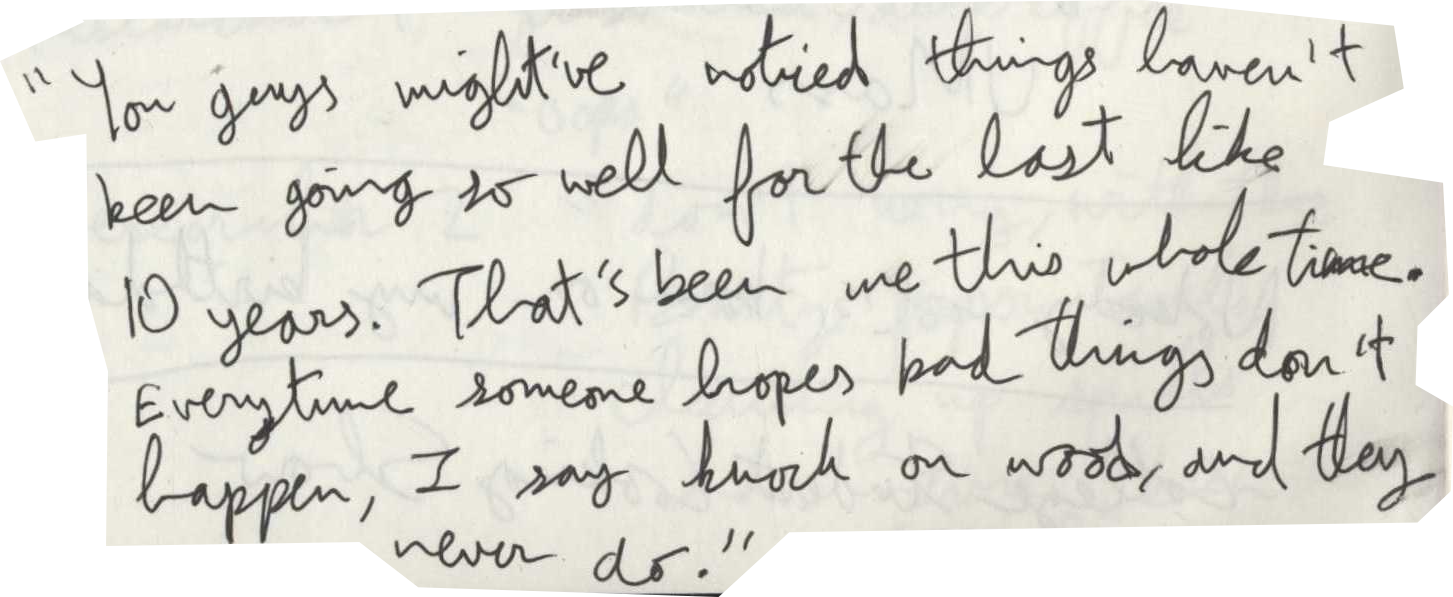 "You guys might've noticed things haven't
been going so well for the last like
10 years. That's been me this whole time.
Everytime someone hopes bad things don't
happen, I say knock on wood, and they
never do."